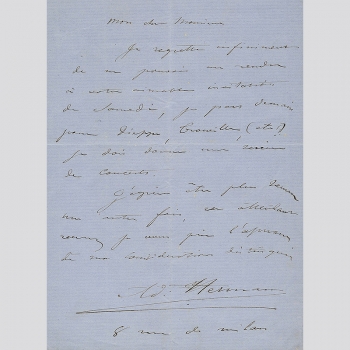 Mon cher Monsieur
Je regrette infiniment
de ne pouvoir me rendre
à votre aimable invitation
de Samedi, je pars demain
pour Dieppe, Trouville, (etc!)
je dois donner une série
de concerts.
J'espère être plus heureux
une autre fois, en attendant
recevez je vous prie l'expression
de ma considération distinguée
Ad. Herman
8 rue de milan